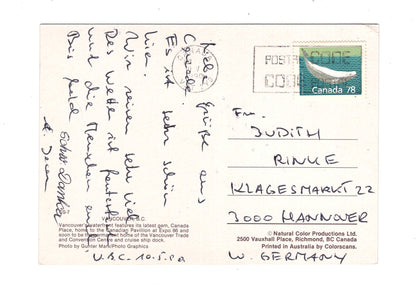 Viele Grüße aus
Canada.
Es ist sehr schön
hier.
Wir reisen sehr viel.
Das Wetter ist fantastisch
und die Menschen auch.
Bis bald
U.B.C. 10.5.90
VANCOUVER, B.C.
Vancouver's waterfront features its latest gem, Canada
Place, home to the Canadian Pavillion at Expo 86 and
soon to be the permanent home of the Vancouver Trade
and Convention Centre and cruise ship dock.
Photo by Gunter Marx/Photo Graphics
POSTAL CODE
CODE
Canada 78
Fr.
JUDITH
RINKE
KLAGESMARKT 22
3000 HANNOVER
W. GERMANY
© Natural Color Productions Ltd.
2500 Vauxhall Place, Richmond, BC Canada
Printed in Australia by Colorscans.